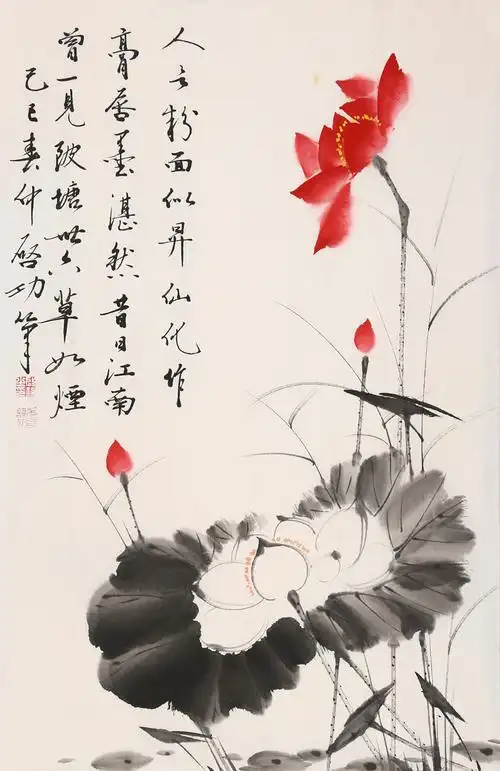 人言粉面似昇仙化作
膏唇墨湛然昔日江南
曾一見陂塘卅六草如煙
己巳春仲啓功筆